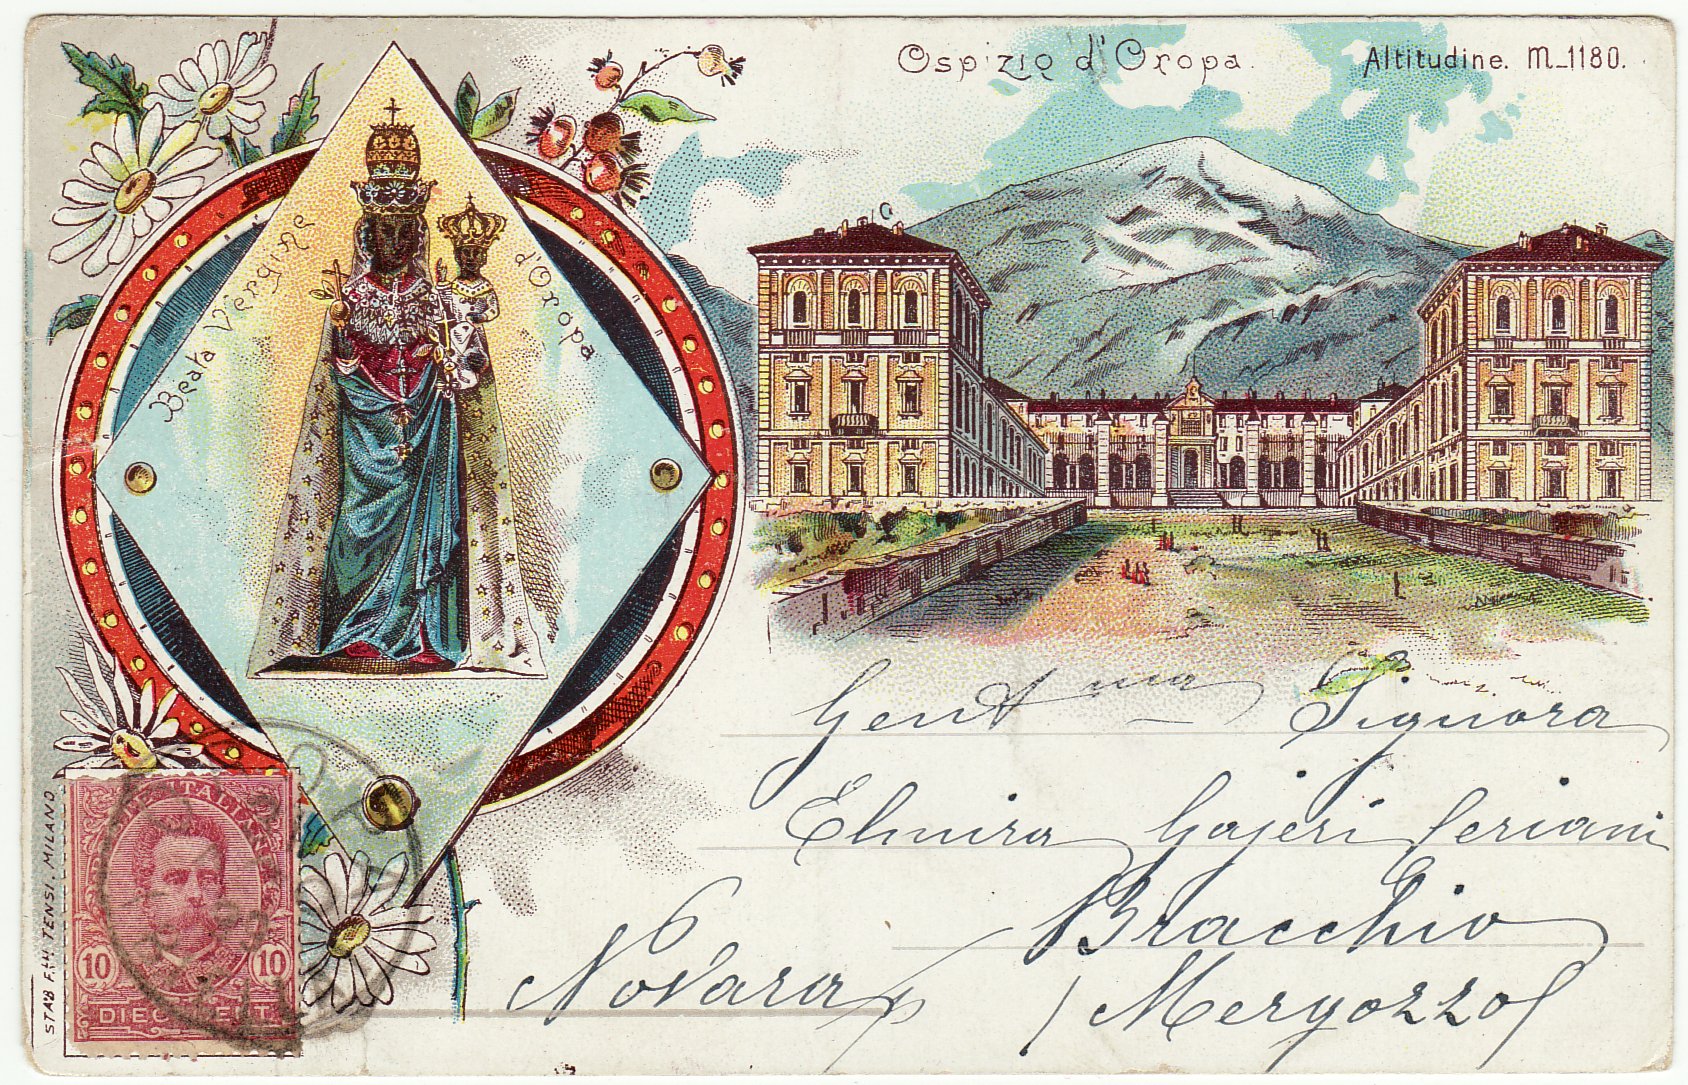 Ospizio d'Oropa.
Altitudine. M_1180.
Beata Vergine
d'Oropa
Gent ma Signora
Elmira Gajeri Ceriani
Bracchio
Novara p / Mergozzo /
STAB F.LLI TENSI. MILANO
POSTE ITALIANE
10 10
DIECI CENT.
OROPA